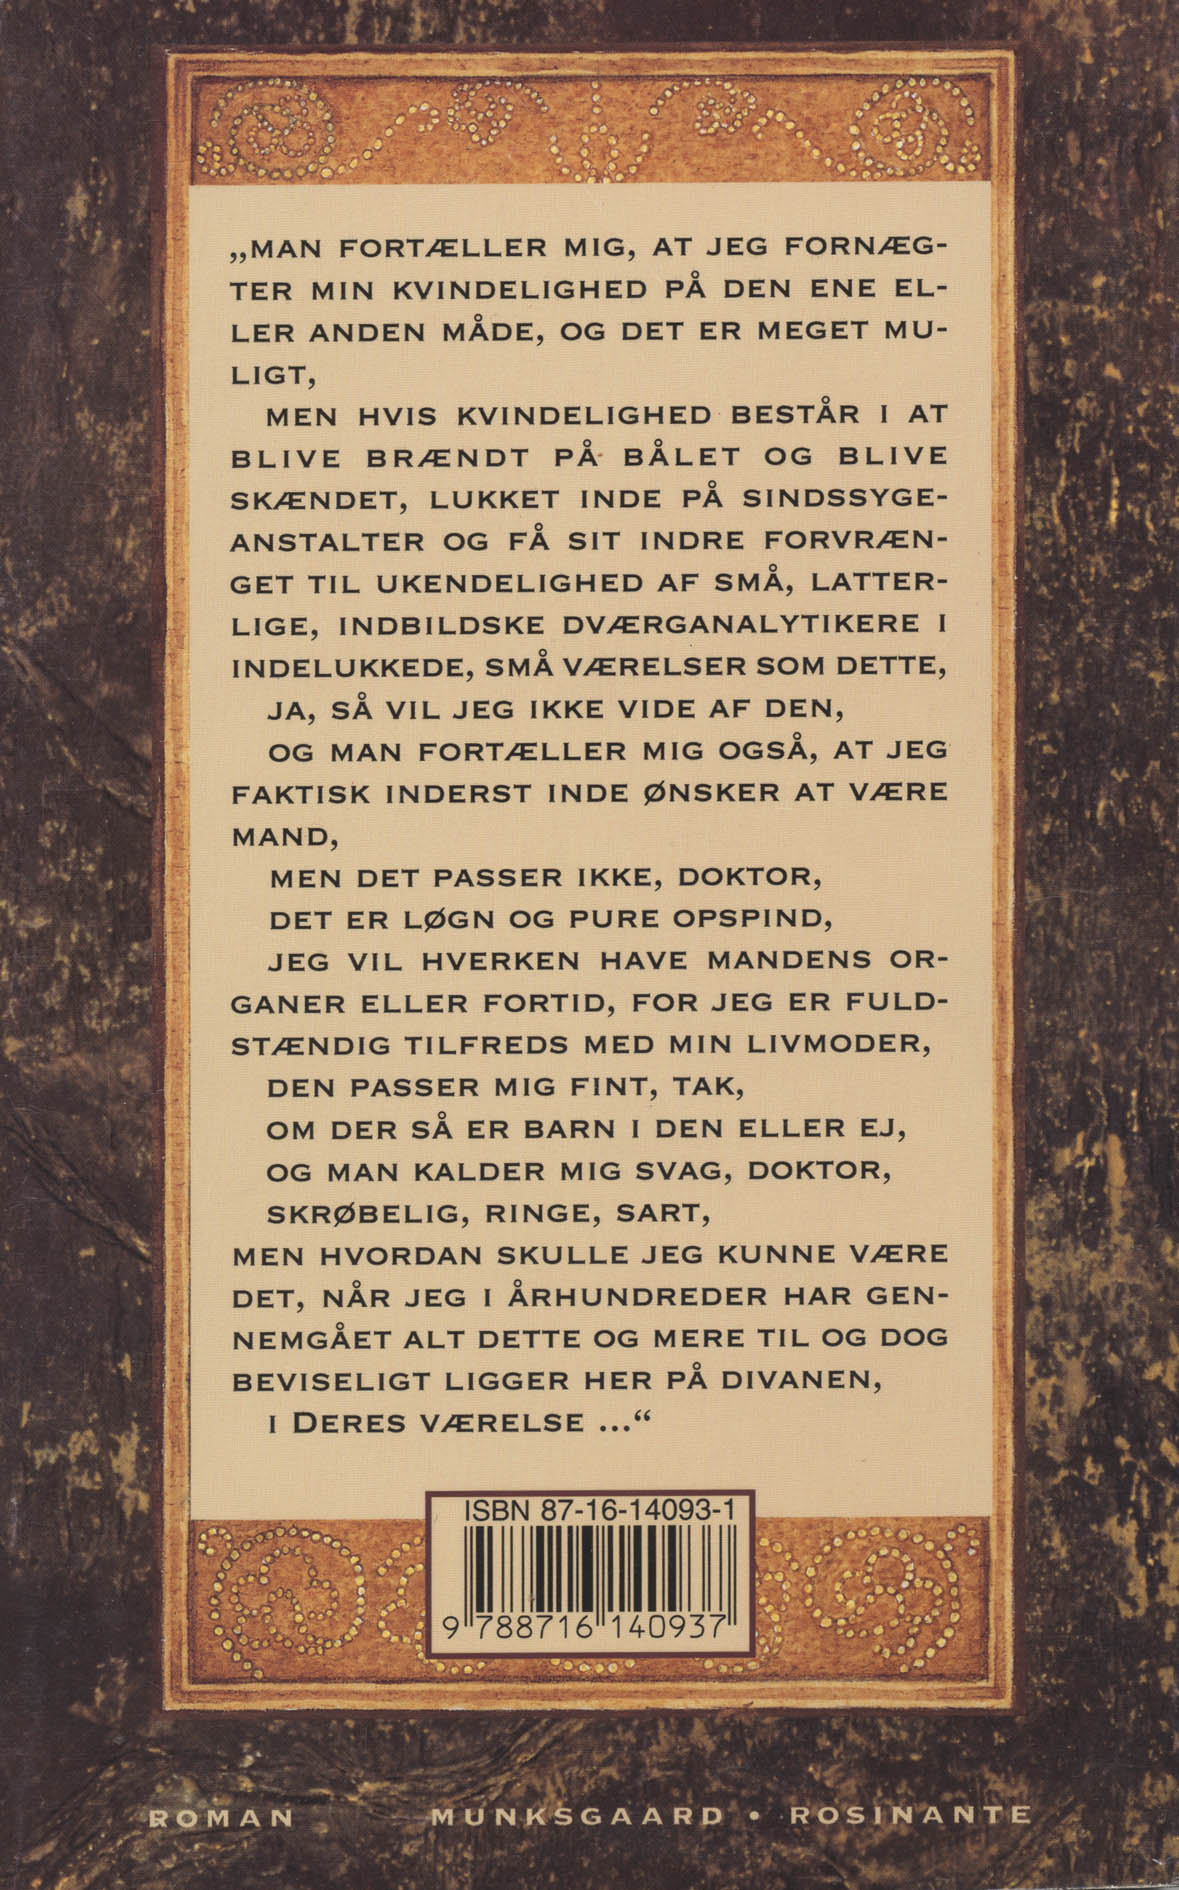 „MAN FORTÆLLER MIG, AT JEG FORNÆG-
TER MIN KVINDELIGHED PÅ DEN ENE EL-
LER ANDEN MÅDE, OG DET ER MEGET MU-
LIGT,
MEN HVIS KVINDELIGHED BESTÅR I AT
BLIVE BRÆNDT PÅ BÅLET OG BLIVE
SKÆNDET, LUKKET INDE PÅ SINDSSYGE-
ANSTALTER OG FÅ SIT INDRE FORVRÆN-
GET TIL UKENDELIGHED AF SMÅ, LATTER-
LIGE, INDBILDSKE DVÆRGANALYTIKERE I
INDELUKKEDE, SMÅ VÆRELSER SOM DETTE,
JA, SÅ VIL JEG IKKE VIDE AF DEN,
OG MAN FORTÆLLER MIG OGSÅ, AT JEG
FAKTISK INDERST INDE ØNSKER AT VÆRE
MAND,
MEN DET PASSER IKKE, DOKTOR,
DET ER LØGN OG PURE OPSPIND,
JEG VIL HVERKEN HAVE MANDENS OR-
GANER ELLER FORTID, FOR JEG ER FULD-
STÆNDIG TILFREDS MED MIN LIVMODER,
DEN PASSER MIG FINT, TAK,
OM DER SÅ ER BARN I DEN ELLER EJ,
OG MAN KALDER MIG SVAG, DOKTOR,
SKRØBELIG, RINGE, SART,
MEN HVORDAN SKULLE JEG KUNNE VÆRE
DET, NÅR JEG I ÅRHUNDREDER HAR GEN-
NEMGÅET ALT DETTE OG MERE TIL OG DOG
BEVISELIGT LIGGER HER PÅ DIVANEN,
I DERES VÆRELSE ...“
ISBN 87-16-14093-1
9 788716 140937
ROMAN MUNKSGAARD • ROSINANTE